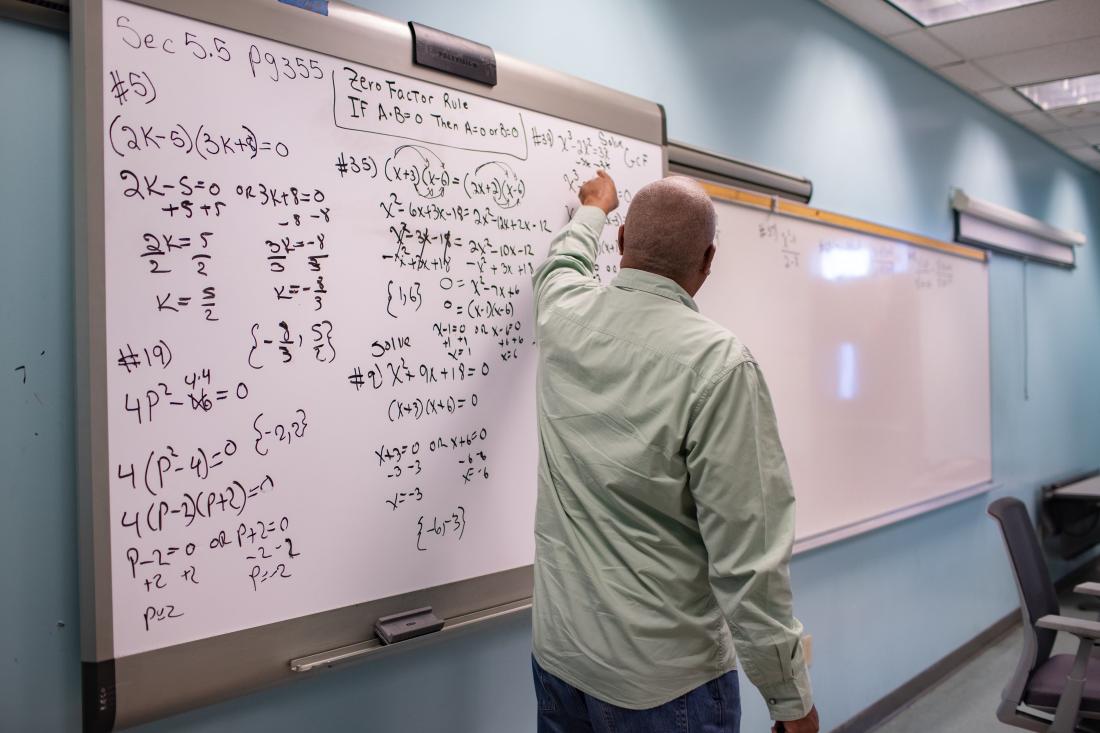 Sec 5.5 pg355
#5)
(2K-5)(3K+8)=0
2K-5=0 OR 3K+8=0
+5 +5 -8 -8
2K = 5 3K = -8
2 2 3 3
K = 5/2 K = -8/3
{-8/3, 5/2}
#19)
4·4
4P²-16=0
{-2,2}
4(P²-4)=0
4(P-2)(P+2)=0
P-2=0 OR P+2=0
+2 +2 -2 -2
P=2 P=-2
Zero Factor Rule
If A·B=0 Then A=0 or B=0
#35) (x+3)(x-6) = (2x+2)(x-6)
x²-6x+3x-18 = 2x²-12x+2x-12
x²-3x-18 = 2x²-10x-12
-x²+3x+18 -x²+3x+18
0 = x²-7x+6
{1,6}
0 = (x-1)(x-6)
x-1=0 OR x-6=0
+1 +1 +6 +6
x=1 x=6
Solve
#9) x²+9x+18=0
(x+3)(x+6)=0
x+3=0 OR x+6=0
-3 -3 -6 -6
x=-3 x=-6
{-6,-3}
Solve
#39) x³-2x²=3x
GCF
-3x -3x